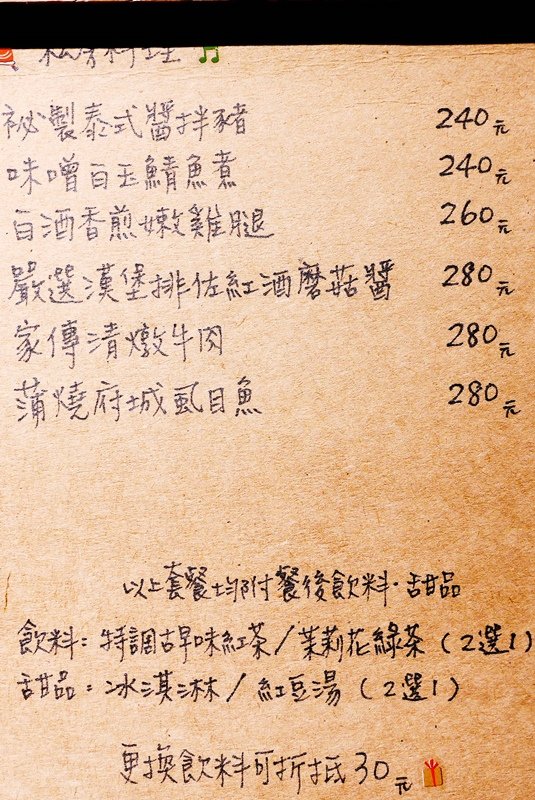 私房料理
祕製泰式醬拌豬 240元
味噌白玉鯖魚煮 240元
白酒香煎嫩雞腿 260元
嚴選漢堡排佐紅酒蘑菇醬 280元
家傳清燉牛肉 280元
蒲燒府城虱目魚 280元
以上套餐均附餐後飲料·甜品
飲料：特調古早味紅茶/茉莉花綠茶（2選1）
甜品：冰淇淋/紅豆湯（2選1）
更換飲料可折抵30元